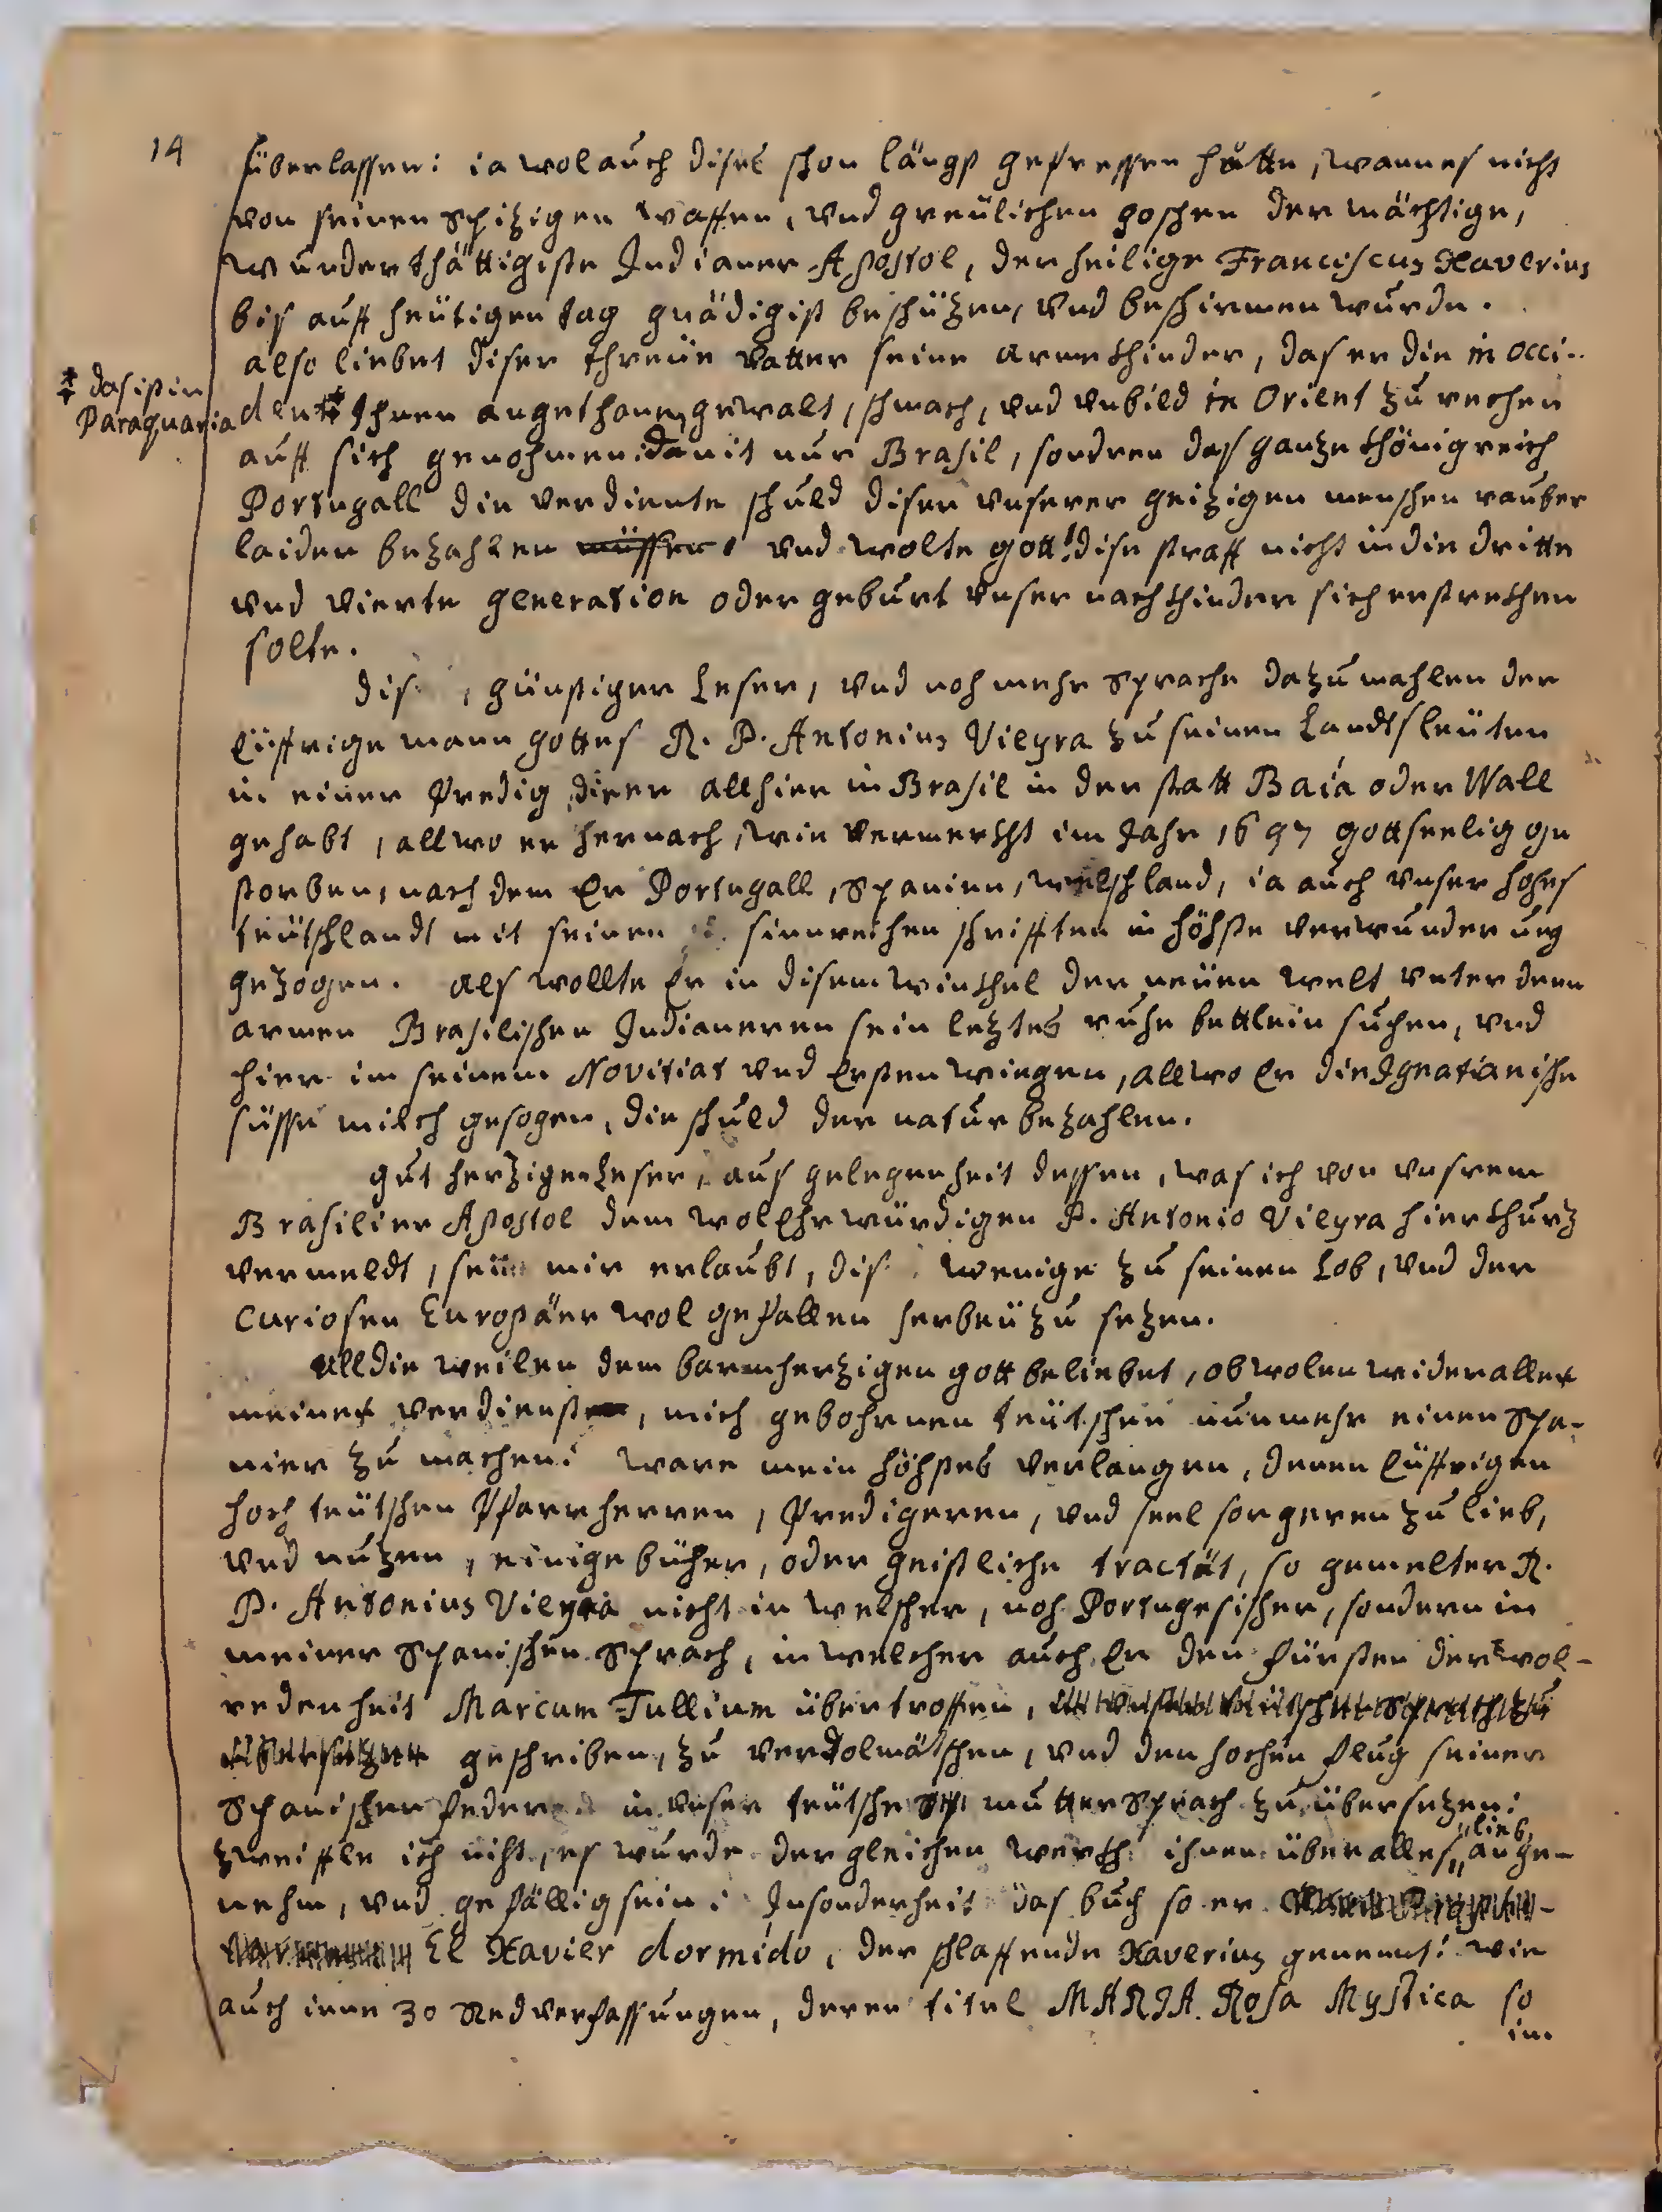 14
überlassen: ia wol auch dises schon längst gefressen hätte, wann es nicht
von seinen spizigen waffen, vnd greülichen goschen der mächtige,
wunderthättigiste Indianer Apostol, der heilige Franciscus Xaverius
bis auff heütigen tag gnädigist beschüzen, vnd beschirmen wurde.
also liebet diser threüe vatter seine arme khinder, das er die in occi-
‡ das ist in
Paraquaria
dent ‡ Ihnen angethane gewalt, schmach, vnd vnbild in Orient zu rechen
auff sich genohmen: damit nur Brasil, sondren das ganze khönigreich
Portugall die verdiente schuld diser vnserer geizigen menschen rauber
laider bezahlen müssen: vnd wolte gott! dise straff nicht in die dritte
vnd vierte generation oder geburt vnser nachkhinder sich erstrekhen
solte.
dis, günstiger Leser, vnd noh mehr sprache dazumahlen der
Eüffrige mann gottes R. P. Antonius Vieyra zu seinen Landtsleüten
in einer predig, dieer allhier in Brasil in der statt Baia oder Wall
gehabt, allwo er hernach, wie vermerkht im Jahr 1697 gottseelig ge
storben, nach dem Er Portugall, Spanien, welschland, ia auch vnser hohes
teütschlandt mit seinen sinnreichen schrifften in höhste verwunderung
gezogen. als wollte Er in disem winkhel der neüen welt vnter denen
armen Brasilischen Indianeren sein leztes ruhe bettlein suchen, vnd
hier im seinem Novitiat vnd Ersten wiegen, allwo Er die Ignatianishe
süsse milch gesogen, die schuld der natur bezahlen.
gut herziger Leser, aus gelegenheit dessen, was ich von vnsrem
Brasilier Apostol dem wolEhrwürdigen P. Antonio Vieyra hier khurz
vermeldt, seie mir erlaubt, dis wenige zu seinen Lob, vnd der
Curiosen Europäer wolgefallen herbeü zu sezen.
All die weilen dem barmherzigen gott beliebet, obwolen wider alles
meines verdienst, mich gebohrnen teütschen nunmehr einen Spa-
nier zu machen: ware mein höhstes verlangen, denen Eüffrigen
hoch teütschen Pfarrherren, Predigeren, vnd seel sorgeren zu lieb,
vnd nuzen, einige büher, oder geistliche tractät, so gemelter R.
P. Antonius Vieyra nicht in welscher, noh Portugesischer, sondern in
meiner Spanischen Sprach, in welcher auch Er den fürsten der wol-
redenheit Marcum Tullium übertroffen,
geschriben, zu verdolmätschen, vnd den hochen flug seiner
Spanischen feder in vnser teütsche mutter Sprach zu übersezen:
zweiffle ich niht, es wurde dergleichen werkh ihnen über alles „lieb„ ange-
nehm, vnd gefällig sein: Insonderheit das buch so er
El Xavier dormido, der schlaffende Xaverius genennt: wie
auch iene 30 Redverfassungen, deren titul MARIA Rosa Mystica so
im